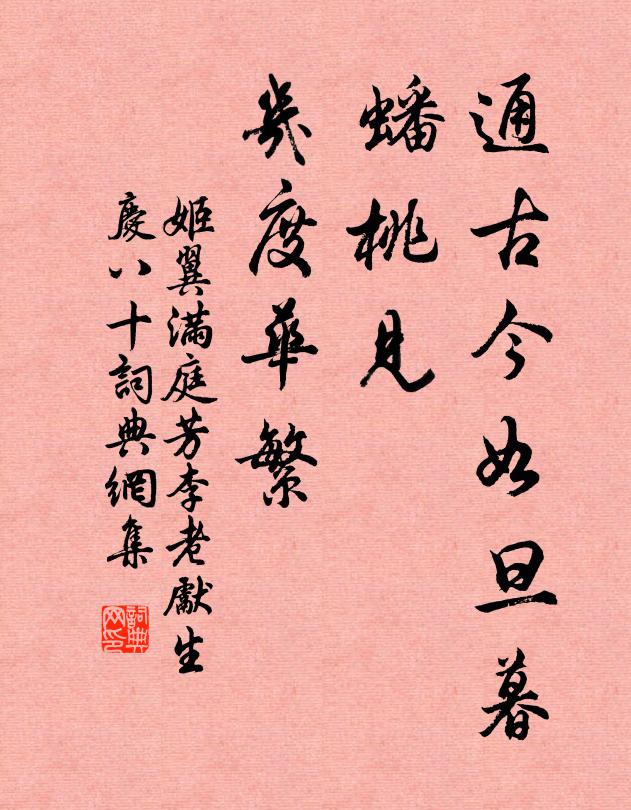 通古今如旦暮
蟠桃見
幾度華繁
姬翼滿庭芳李老獻生
慶八十詞典網集
詞典
网印